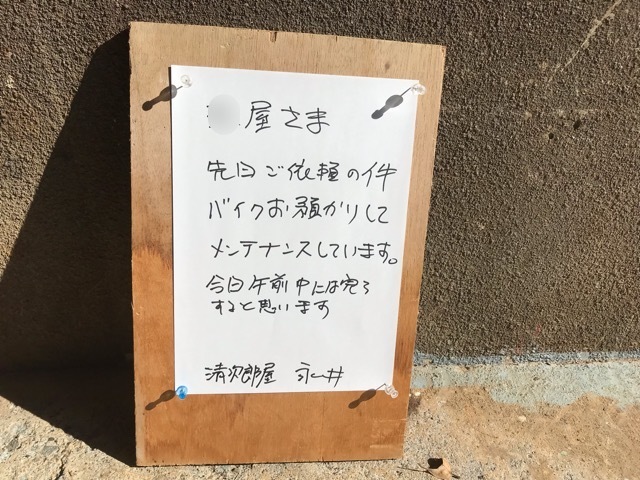 屋さま
先日ご依頼の件
バイクお預かりして
メンテナンスしています。
今日午前中には完了
すると思います
清次郎屋 永井